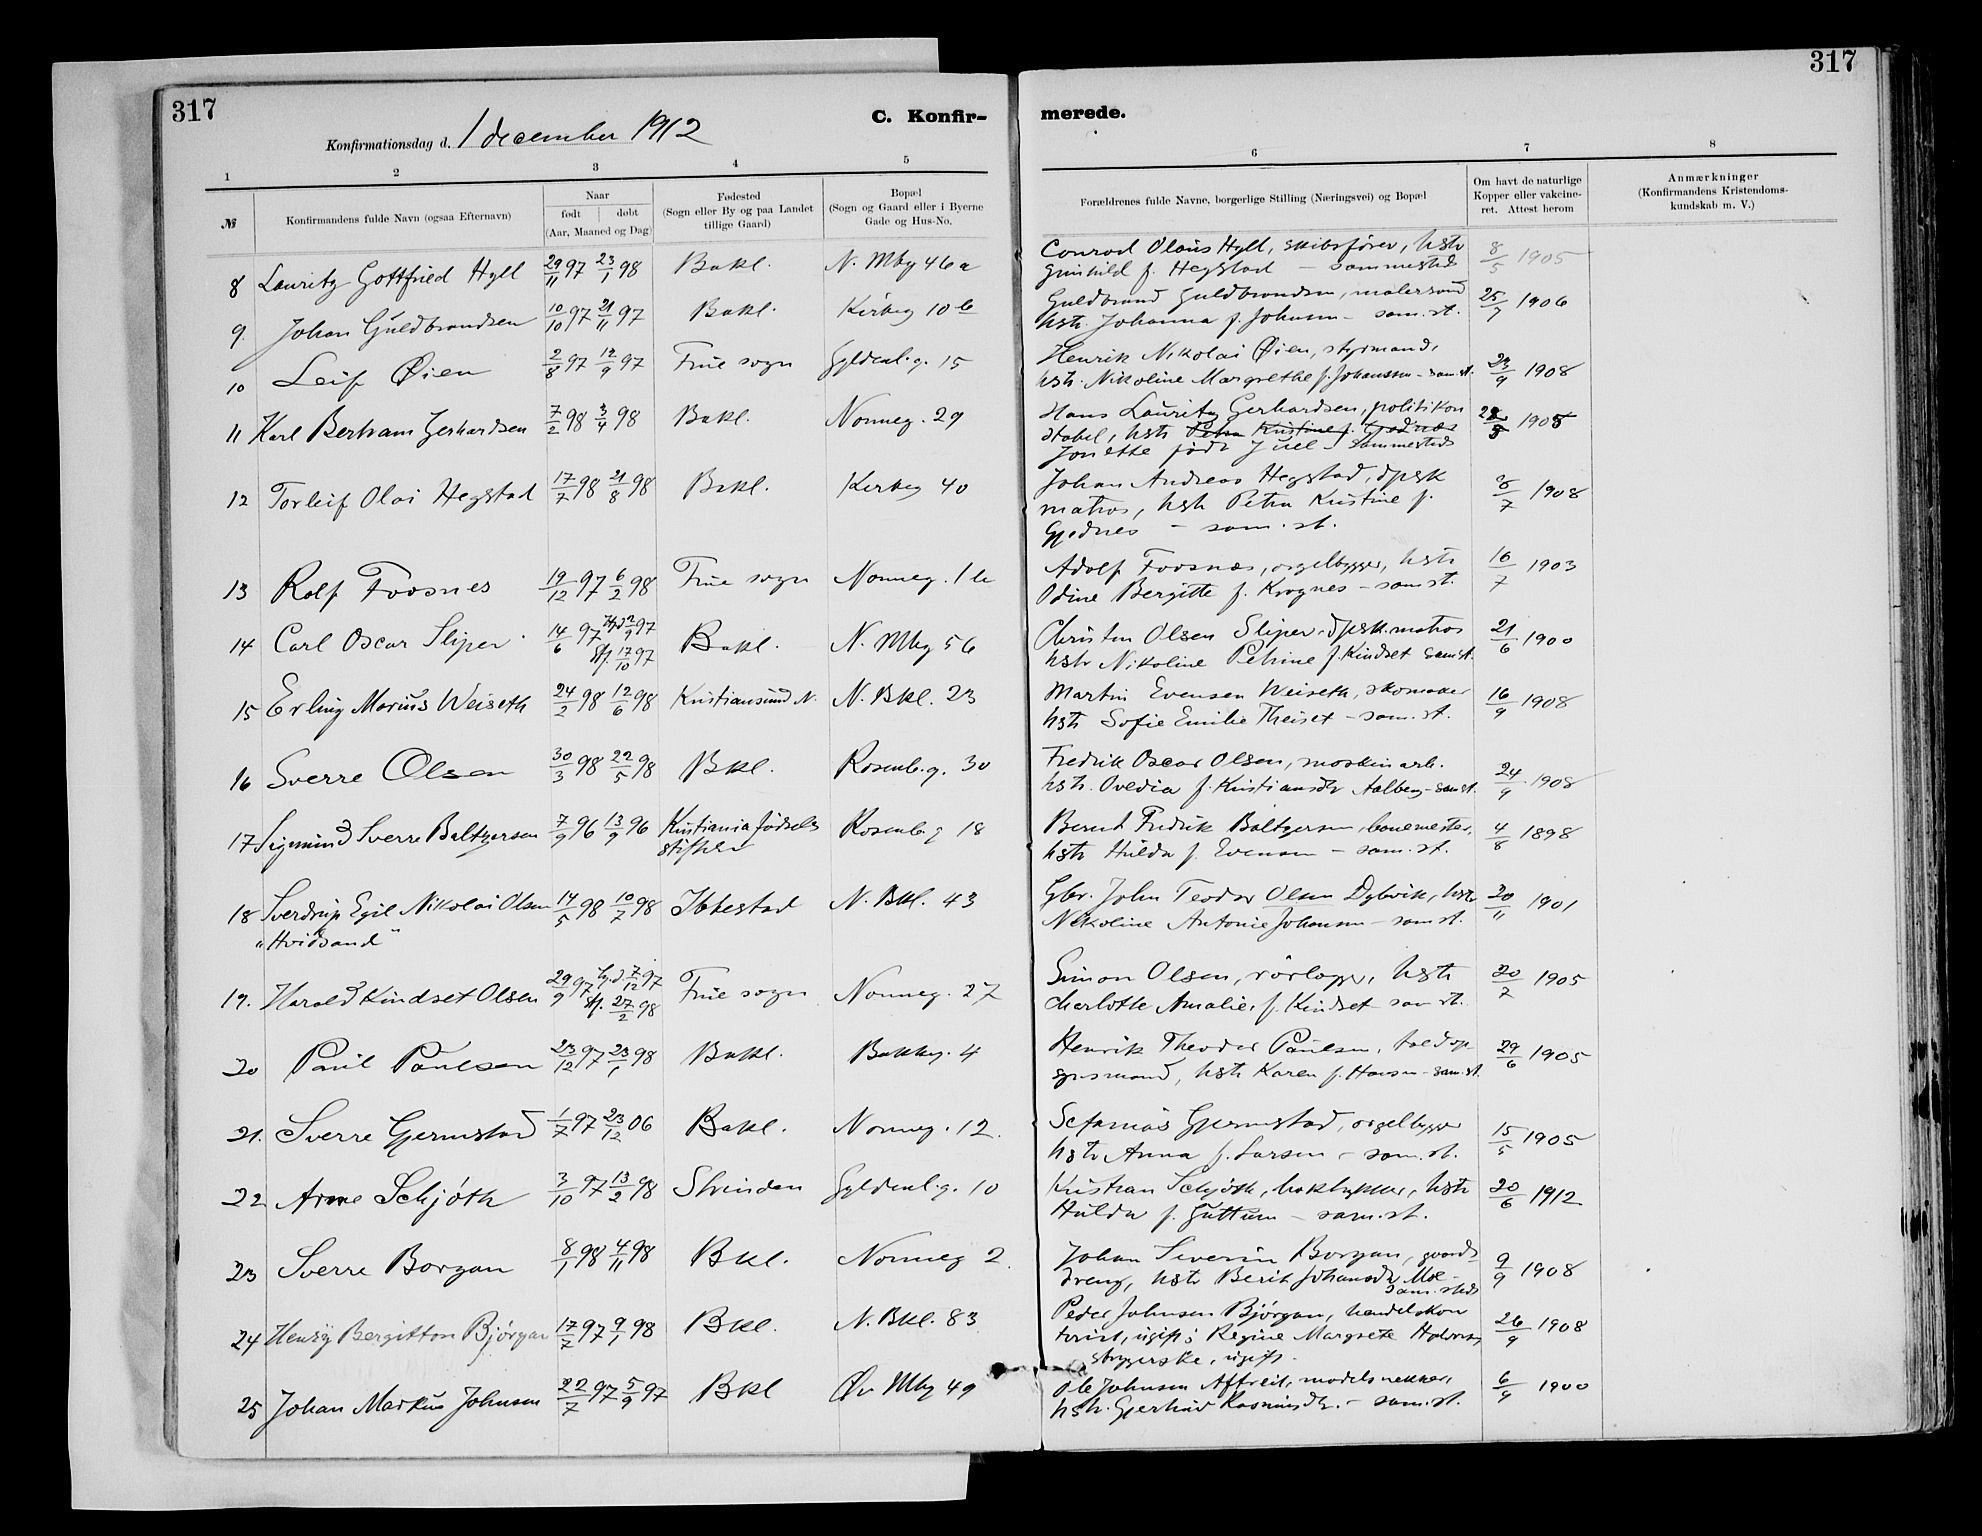 317
317
Konfirmationsdag d. 1 december 1912
C. Konfir-
merede.
1 2 3 4 5 6 7 8
№
Konfirmandens fulde Navn (ogsaa Efternavn)
Naar
født | døbt
(Aar, Maaned og Dag)
Fødested
(Sogn eller By og paa Landet
tillige Gaard)
Bopæl
(Sogn og Gaard eller i Byerne
Gade og Hus-No.
Forældrenes fulde Navne, borgerlige Stilling (Næringsvei) og Bopæl
Om havt de naturlige
Kopper eller vakcine-
ret. Attest herom
Anmærkninger
(Konfirmandens Kristendoms-
kundskab m. V.)
8 Lauritz Gottfried Hyll 29/11 97 23/1 98 Bakl. N. Mbg 46a Conrad Olaus Hyll, skibsfører, hstr 8/5 1905
Gunhild f. Hegstad - sammesteds
9. Johan Guldbrandsen 10/10 97 21/11 97 Bakl. Kirkeg 10 b Guldbrand Guldbrandsen, malersvend 25/7 1906
hstr. Johanna f. Johnsen - sam.st.
10 Leif Øien 2/8 97 12/9 97 Frue sogn Gyldenl.g. 15 Henrik Nikolai Øien, styrmand,
hstr. Nikoline Margrethe f. Johanssen - sam.st. 23/9 1908
11 Karl Bertram Gerhardsen 7/2 98 3/4 98 Bakl. Nonneg. 29 Hans Lauritz Gerhardsen, politikon
stabel, hstr Petra Kristine f. Gjednes 1905
Jonette født Juel - sammesteds
12 Torleif Olai Hegstad 17/7 98 21/8 98 Bakl. Kirkeg 40 Johan Andreas Hegstad, dpsk
matros, hstr Petra Kristine f. 8/7 1908
Gjednes - sam.st.
13 Rolf Foosnes 19/12 97 6/2 98 Frue sogn Nonneg. 1 b Adolf Foosnæs, orgelbygger, hstr 16/7 1903
Odine Bergitte f. Krognes - sam st.
14 Carl Oscar Sliper 14/6 97 Hjd 2/9 97 Bakl. N. Mbg 56 Christen Olsen Sliper, dpsk. matros 21/6 1900
stf. 17/10 97 hstr Nikoline Petrine f. Kindset sam st.
15 Erling Marius Weiseth 24/2 98 12/6 98 Kristiansund N. N. Bkl. 23 Martin Evensen Weiseth, skomaker 16/9 1908
hstr Sofie Emilie Theiset - sam.st.
16 Sverre Olsen 30/3 98 22/5 98 Bkl. Rosenb.g. 30 Fredrik Oscar Olsen, maskinarb.
hstr. Ovedia f. Kristiansdtr Aalberg - sam st. 24/9 1908
17 Sigmund Sverre Baltzersen 7/9 96 13/9 96 Kristiania fødsels Rosenb.g 18 Bernt Fredrik Baltzersen, banemester, 4/8 1898
stiftelse hstr Hulda f. Evensen - sam.st.
18 Sverdrup Egil Nikolai Olsen 14/5 98 10/7 98 Ibbestad N. Bkl. 43 Gbr. John Teodor Olsen Dybvik, hstr 20/11 1901
"Hvidsand" Nikoline Antonie Johansen - sam st.
19. Harald Kindset Olsen 29/9 97 hj.d 7/12 97 Frue sogn Nonneg. 27 Simon Olsen, rørlægger, hstr 20/7 1905
stf. 27/2 98 Charlotte Amalie, f. Kindset - sam st.
20 Paul Paulsen 23/12 97 23/1 98 Bakl. Bakkeg. 4 Henrik Theodor Paulsen, toldop
synsmand, hstr Karen f. Hansen - sam.st. 29/6 1905
21. Sverre Gjermstad 1/7 97 23/12 06 Bakl. Nonneg. 12. Sefanias Gjermstad, orgelbygger 15/5 1905
hstr Anna f. Larsen - sam.st.
22 Arne Schjøth 3/10 97 13/2 98 Strinden Gyldenl.g. 10 Kristian Schjøth, boktrykker, hstr 20/6 1912
Hulda f. Guttum - sam.st.
23 Sverre Borgan 8/1 98 4/11 98 Bkl. Nonneg 2. Johan Severin Borgan, gaards 9/9 1908
dreng, hstr Berit Johansdtr Moe -
sam.steds
24 Henry Bergitton Bjørgan 17/7 97 9/1 98 Bkl. N. Bkl. 83 Peder Johnsen Bjørgan, handelskon
torist, ugift; Regine Margrete 26/9 1908
strygerske, ugift.
25 Johan Markus Johnsen 22/7 97 5/9 97 Bkl Øv Mbg 49 Ole Johnsen Aftreit, modelsnekker, 6/9 1900
hstr. Gjertrud Rasmusdtr. - sam.st.